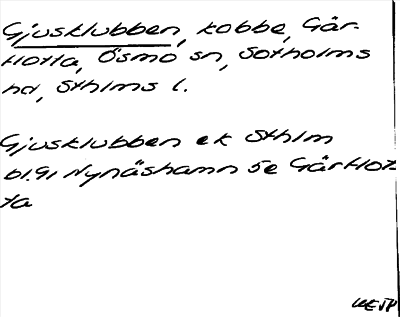 Gjusklubben, kobbe, Går-
Hotta, Ösmo sn, Sotholms
hd, Sthlms l.
Gjusklubben ek Sthlm
bl.91 Nynäshamn 5e GårHot
ta